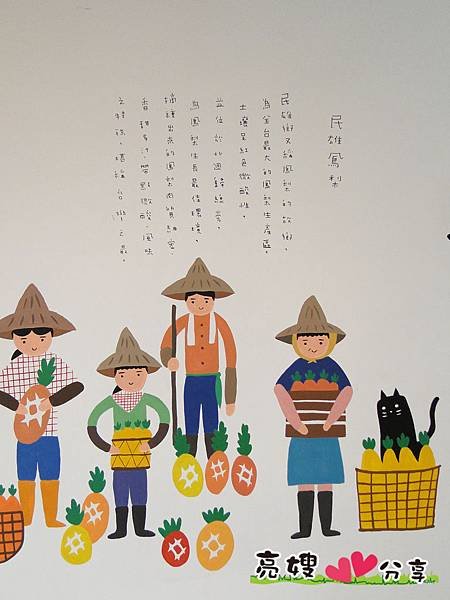 民雄鳳梨
民雄鄉又稱鳳梨的故鄉。
為全台最大的鳳梨生產區
土壤呈紅色微酸性。
並位於北迴歸線旁。
為鳳梨生長最佳環境。
種出來的鳳梨肉質細密、
香甜多汁、帶點微酸、風味
之特殊、堪稱台灣之最。
亮嫂分享